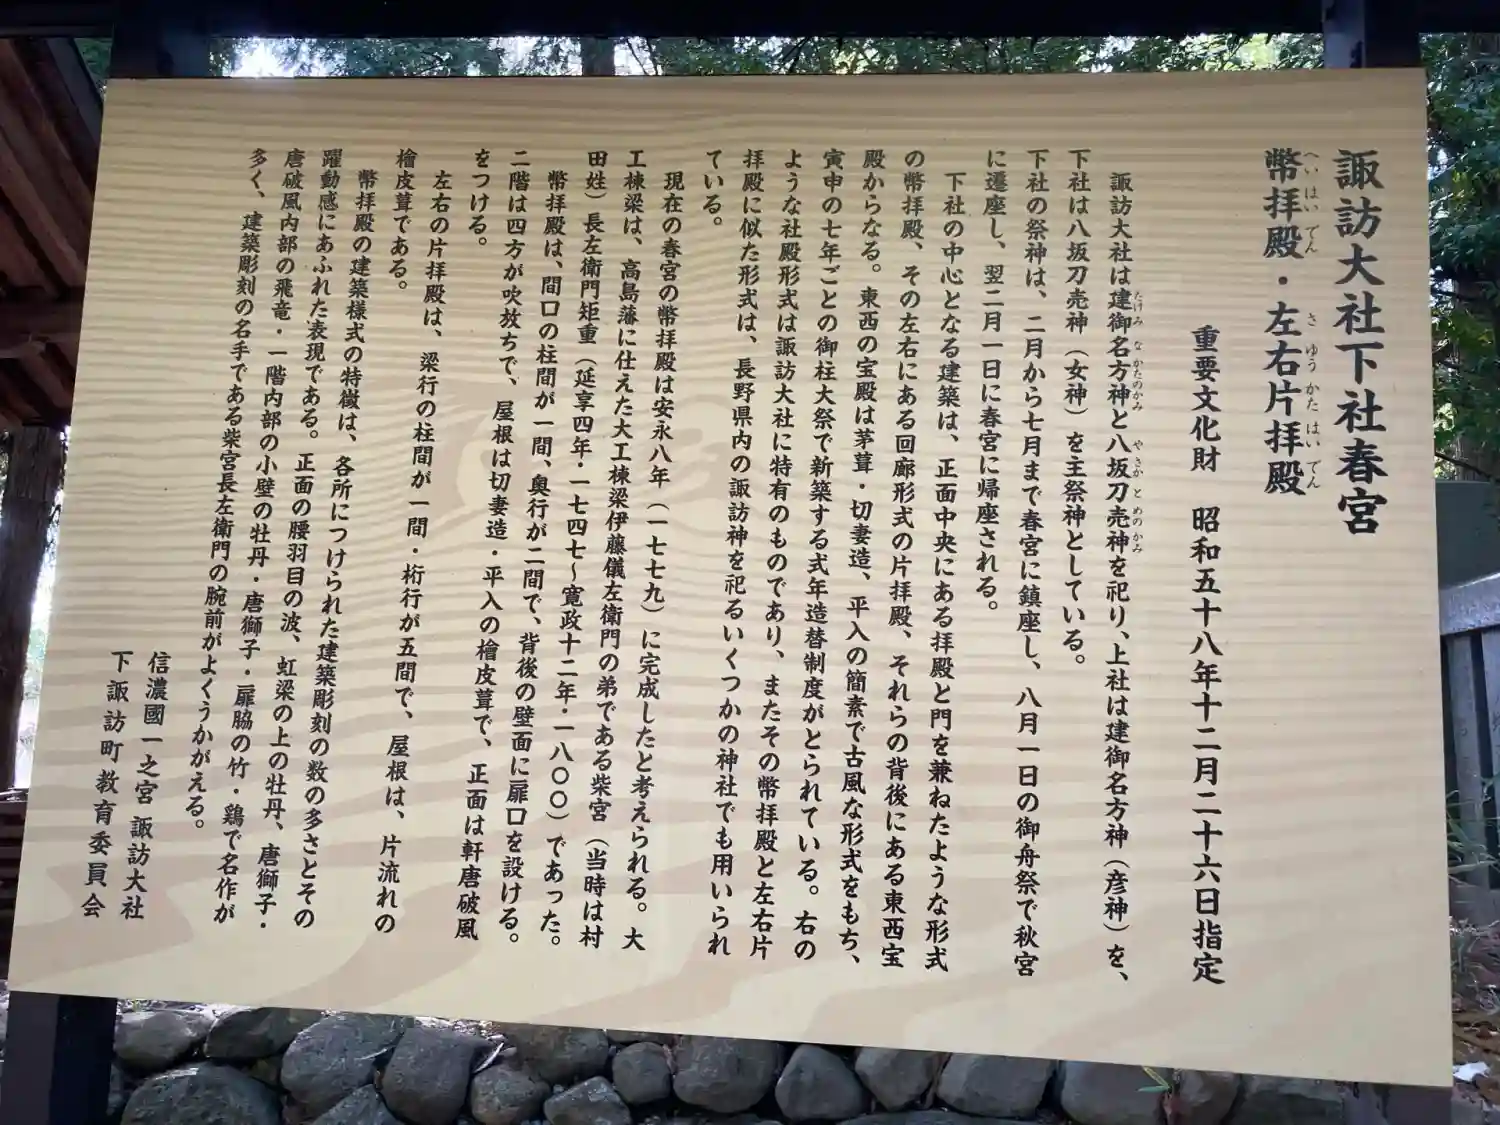 諏訪大社下社春宮
幣拝殿・左右片拝殿
へいはいでん さゆうかたはいでん
重要文化財 昭和五十八年十二月二十六日指定
諏訪大社は建御名方神と八坂刀売神を祀り、上社は建御名方神（彦神）を、
たけみなかたのかみ やさかとめのかみ
下社は八坂刀売神（女神）を主祭神としている。
下社の祭神は、二月から七月まで春宮に鎮座し、八月一日の御舟祭で秋宮
に遷座し、翌二月一日に春宮に帰座される。
下社の中心となる建築は、正面中央にある拝殿と門を兼ねたような形式
の幣拝殿、その左右にある回廊形式の片拝殿、それらの背後にある東西宝
殿からなる。東西の宝殿は茅葺・切妻造、平入の簡素で古風な形式をもち、
寅申の七年ごとの御柱大祭で新築する式年造替制度がとられている。右の
ような社殿形式は諏訪大社に特有のものであり、またその幣拝殿と左右片
拝殿に似た形式は、長野県内の諏訪神を祀るいくつかの神社でも用いられ
ている。
現在の春宮の幣拝殿は安永八年（一七七九）に完成したと考えられる。大
工棟梁は、高島藩に仕えた大工棟梁伊藤儀左衛門の弟である柴宮（当時は村
田姓）長左衛門矩重（延享四年・一七四七～寛政十二年・一八〇〇）であった。
幣拝殿は、間口の柱間が一間、奥行が二間で、背後の壁面に扉口を設ける。
二階は四方が吹放ちで、屋根は切妻造・平入の檜皮葺で、正面は軒唐破風
をつける。
左右の片拝殿は、梁行の柱間が一間・桁行が五間で、屋根は、片流れの
檜皮葺である。
幣拝殿の建築様式の特徴は、各所につけられた建築彫刻の数の多さとその
躍動感にあふれた表現である。正面の腰羽目の波、虹梁の上の牡丹、唐獅子・
唐破風内部の飛竜・一階内部の小壁の牡丹・唐獅子・扉脇の竹・鶏で名作が
多く、建築彫刻の名手である柴宮長左衛門の腕前がよくうかがえる。
信濃國一之宮 諏訪大社
下諏訪町教育委員会